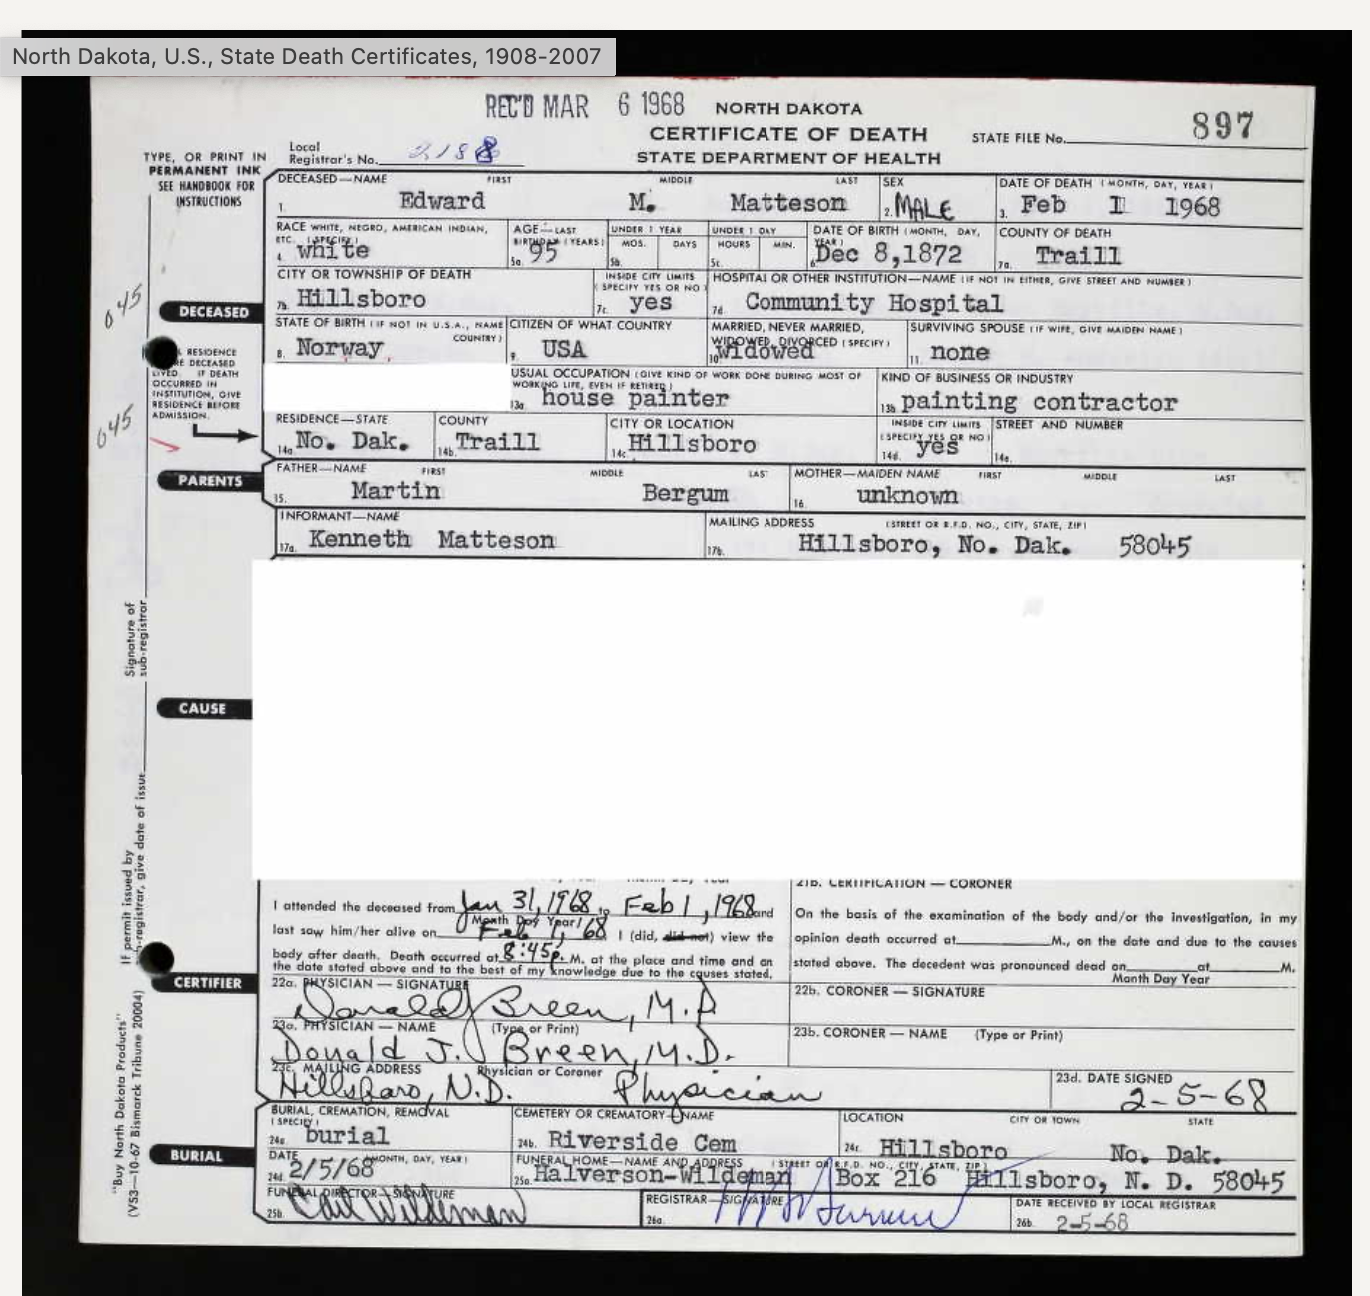 North Dakota, U.S., State Death Certificates, 1908-2007
REC'D MAR 6 1968 NORTH DAKOTA
CERTIFICATE OF DEATH STATE FILE No. 897
STATE DEPARTMENT OF HEALTH
Local Registrar's No. 2188
TYPE, OR PRINT IN
PERMANENT INK
SEE HANDBOOK FOR
INSTRUCTIONS
DECEASED—NAME FIRST MIDDLE LAST SEX DATE OF DEATH (MONTH, DAY, YEAR)
1. Edward M. Matteson 2. MALE 3. Feb 1 1968
RACE WHITE, NEGRO, AMERICAN INDIAN, ETC. (SPECIFY) AGE—LAST BIRTHDAY (YEARS) UNDER 1 YEAR MOS. DAYS UNDER 1 DAY HOURS MIN. DATE OF BIRTH (MONTH, DAY, YEAR) COUNTY OF DEATH
4. white 5a. 95 5b. 5c. 6. Dec 8,1872 7a. Traill
CITY OR TOWNSHIP OF DEATH INSIDE CITY LIMITS (SPECIFY YES OR NO) HOSPITAL OR OTHER INSTITUTION—NAME (IF NOT IN EITHER, GIVE STREET AND NUMBER)
7b. Hillsboro 7c. yes 7d. Community Hospital
645
DECEASED
STATE OF BIRTH (IF NOT IN U.S.A., NAME COUNTRY) CITIZEN OF WHAT COUNTRY MARRIED, NEVER MARRIED, WIDOWED, DIVORCED (SPECIFY) SURVIVING SPOUSE (IF WIFE, GIVE MAIDEN NAME)
8. Norway 9. USA 10. widowed 11. none
RESIDENCE
DECEASED
LIVED IF DEATH
OCCURRED IN
INSTITUTION, GIVE
RESIDENCE BEFORE
ADMISSION.
USUAL OCCUPATION (GIVE KIND OF WORK DONE DURING MOST OF WORKING LIFE, EVEN IF RETIRED) KIND OF BUSINESS OR INDUSTRY
13a. house painter 13b. painting contractor
645
RESIDENCE—STATE COUNTY CITY OR LOCATION INSIDE CITY LIMITS (SPECIFY YES OR NO) STREET AND NUMBER
14a. No. Dak. 14b. Traill 14c. Hillsboro 14d. yes 14e.
PARENTS
FATHER—NAME FIRST MIDDLE LAST MOTHER—MAIDEN NAME FIRST MIDDLE LAST
15. Martin Bergum 16. unknown
INFORMANT—NAME MAILING ADDRESS (STREET OR R.F.D. NO., CITY, STATE, ZIP)
17a. Kenneth Matteson 17b. Hillsboro, No. Dak. 58045
Signature of
sub-registrar
CAUSE
If permit issued by
-registrar, give date of issue
21b. CERTIFICATION — CORONER
I attended the deceased from Jan 31, 1968 to Feb 1, 1968 and
Month Day Year
last saw him/her alive on Feb 1, /68 I (did, did not) view the
body after death. Death occurred at 8:45 p. M. at the place and time and on
the date stated above and to the best of my knowledge due to the causes stated.
On the basis of the examination of the body and/or the investigation, in my
opinion death occurred at M., on the date and due to the causes
stated above. The decedent was pronounced dead on at M.
Month Day Year
CERTIFIER
22a. PHYSICIAN — SIGNATURE 22b. CORONER — SIGNATURE
Donald J Breen, M.D
23a. PHYSICIAN — NAME (Type or Print) 23b. CORONER — NAME (Type or Print)
Donald J. Breen, M.D.
23c. MAILING ADDRESS Physician or Coroner 23d. DATE SIGNED
Hillsboro, N.D. Physician 2-5-68
"Buy North Dakota Products"
(VS3—10-67 Bismarck Tribune 20004)
BURIAL
BURIAL, CREMATION, REMOVAL (SPECIFY) CEMETERY OR CREMATORY—NAME LOCATION CITY OR TOWN STATE
24a. burial 24b. Riverside Cem 24c. Hillsboro No. Dak.
DATE (MONTH, DAY, YEAR) FUNERAL HOME—NAME AND ADDRESS (STREET OR R.F.D. NO., CITY, STATE, ZIP)
24d. 2/5/68 25a. Halverson-Wildeman Box 216 Hillsboro, N. D. 58045
FUNERAL DIRECTOR—SIGNATURE REGISTRAR—SIGNATURE DATE RECEIVED BY LOCAL REGISTRAR
25b. Carl Wildeman 26a. 26b. 2-5-68